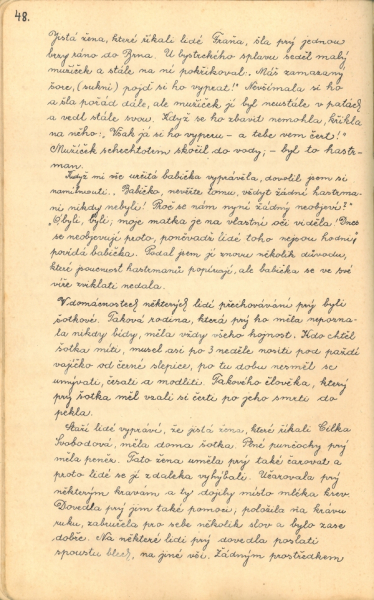 48.
Jistá žena, které říkali lidé Fraňa, šla prý jednou
brzy ráno do Brna. U bystrckého splavu seděl malý
mužíček a stále na ni pokřikoval: „Máš zamazaný
šorc, (sukni) pojď si ho vyprat!" Nevšímala si ho
a šla pořád dále, ale mužíček jí byl neustále v patách
a vedl stále svou. Když se ho zbavit nemohla, křikla
na něho: „Však já si ho vyperu – a tebe vem čert!"
Mužíček s chechtotem skočil do vody; – byl to hastr-
man.
Když mi vše určitě babička vyprávěla, dovolil jsem si
namítnouti. „Babičko, nevěřte tomu, vždyť žádní hastrma-
ni nikdy nebyli! Proč se nám nyní žádný neobjeví?"
„Byli, byli; moje matka je na vlastní oči viděla! Dnes
se neobjevují proto, poněvadž lidé toho nejsou hodni,"
povídá babička. Podal jsem jí znovu několik důvodů,
které jsoucnost hastrmanů popírají, ale babička se ve své
víře zviklati nedala.
V domácnostech některých lidí přechovávání prý byli
šotkové. Taková rodina, která prý ho měla nepozna-
la nikdy bídy, měla vždy všeho hojnost. Kdo chtěl
šotka míti, musel asi po 3 neděle nositi pod paždí
vajíčko od černé slepice, po tu dobu nesměl se
umývati, česati a modliti. Takového člověka, který
prý šotka měl vzali si čerti po jeho smrti do
pekla.
Staří lidé vypráví, že jistá žena, které říkali Cilka
Svobodová, měla doma šotka. Plné punčochy prý
měla peněz. Tato žena uměla prý také čarovat a
proto lidé se jí zdaleka vyhýbali. Učarovala prý
některým kravám a ty dojily místo mléka krev.
Dovedla prý jim také pomoci; položila na krávu
ruku, zabručela pro sebe několik slov a bylo zase
dobře. Na některé lidi prý dovedla poslati
spoustu blech, na jiné vši. Žádným prostředkem